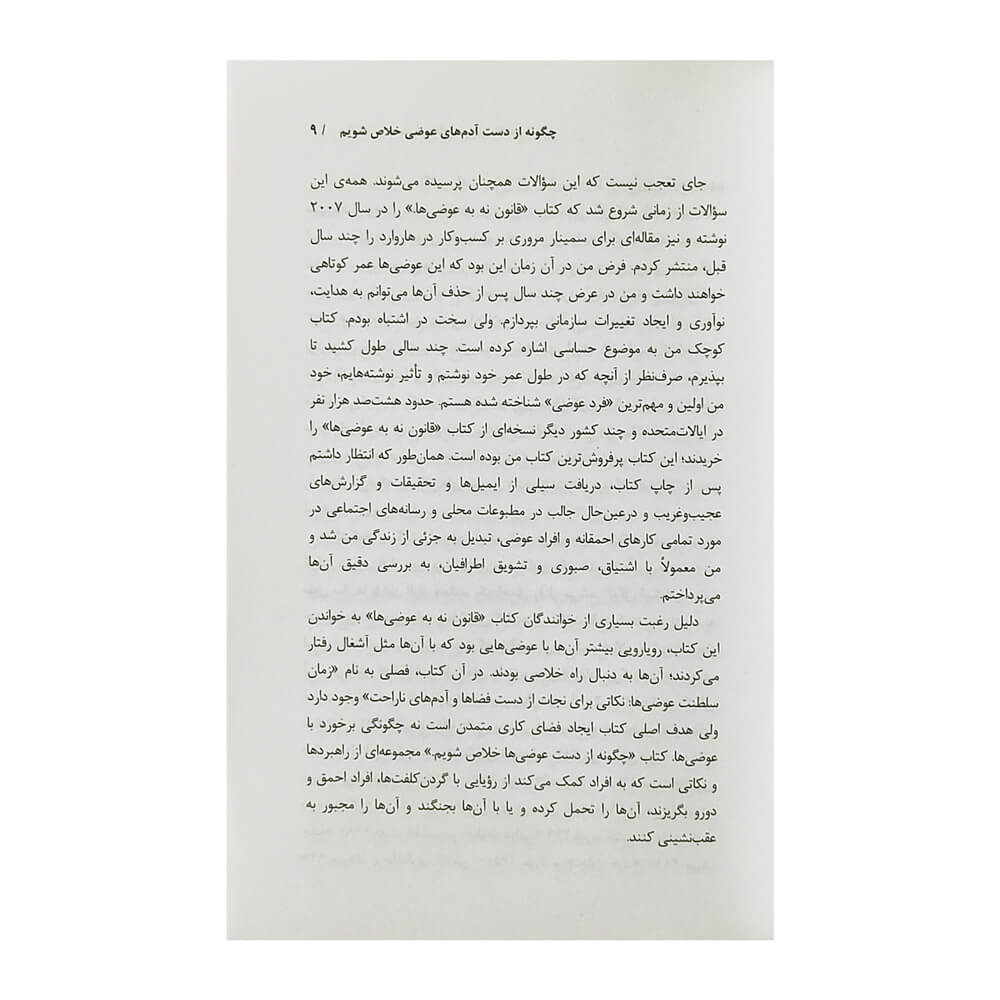 چگونه از دست آدم‌های عوضی خلاص شویم / ۹
جای تعجب نیست که این سؤالات همچنان پرسیده می‌شوند. همه‌ی این
سؤالات از زمانی شروع شد که کتاب «قانون نه به عوضی‌ها.» را در سال ۲۰۰۷
نوشته و نیز مقاله‌ای برای سمینار مروری بر کسب‌وکار در هاروارد را چند سال
قبل، منتشر کردم. فرض من در آن زمان این بود که این عوضی‌ها عمر کوتاهی
خواهند داشت و من در عرض چند سال پس از حذف آن‌ها می‌توانم به هدایت،
نوآوری و ایجاد تغییرات سازمانی بپردازم. ولی سخت در اشتباه بودم. کتاب
کوچک من به موضوع حساسی اشاره کرده است. چند سالی طول کشید تا
بپذیرم، صرف‌نظر از آنچه که در طول عمر خود نوشتم و تأثیر نوشته‌هایم، خود
من اولین و مهم‌ترین «فرد عوضی» شناخته شده هستم. حدود هشت‌صد هزار نفر
در ایالات‌متحده و چند کشور دیگر نسخه‌ای از کتاب «قانون نه به عوضی‌ها» را
خریدند؛ این کتاب پرفروش‌ترین کتاب من بوده است. همان‌طور که انتظار داشتم
پس از چاپ کتاب، دریافت سیلی از ایمیل‌ها و تحقیقات و گزارش‌های
عجیب‌وغریب و درعین‌حال جالب در مطبوعات محلی و رسانه‌های اجتماعی در
مورد تمامی کارهای احمقانه و افراد عوضی، تبدیل به جزئی از زندگی من شد و
من معمولاً با اشتیاق، صبوری و تشویق اطرافیان، به بررسی دقیق آن‌ها
می‌پرداختم.
دلیل رغبت بسیاری از خوانندگان کتاب «قانون نه به عوضی‌ها» به خواندن
این کتاب، رویارویی بیشتر آن‌ها با عوضی‌هایی بود که با آن‌ها مثل آشغال رفتار
می‌کردند؛ آن‌ها به دنبال راه خلاصی بودند. در آن کتاب، فصلی به نام «زمان
سلطنت عوضی‌ها: نکاتی برای نجات از دست فضاها و آدم‌های ناراحت» وجود دارد
ولی هدف اصلی کتاب ایجاد فضای کاری متمدن است نه چگونگی برخورد با
عوضی‌ها. کتاب «چگونه از دست عوضی‌ها خلاص شویم.» مجموعه‌ای از راهبردها
و نکاتی است که به افراد کمک می‌کند از رؤیایی با گردن‌کلفت‌ها، افراد احمق و
دورو بگریزند، آن‌ها را تحمل کرده و یا با آن‌ها بجنگند و آن‌ها را مجبور به
عقب‌نشینی کنند.